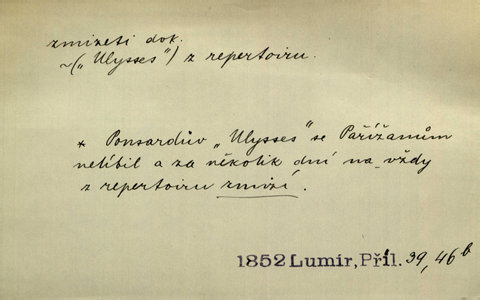 zmizeti dok.
~(„Ulysses") z repertoiru.
* Ponsardův „Ulysses" se Pařížanům
nelíbil a za několik dní na vždy
z repertoiru zmizí.
1852 Lumír, Příl. 39, 46 b